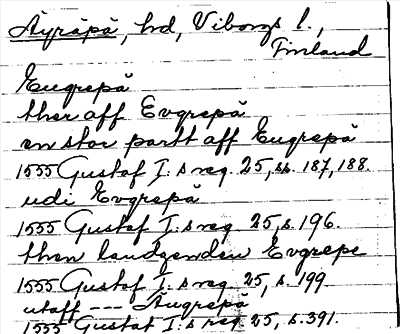 Äyräpä, hd, Viborgs l.,
Finland
Eugrepä
ther aff Evgrepä
en stor partt aff Eugrepä
1555 Gustaf I:s reg. 25, ss. 187, 188.
udi Evgrepä
1555 Gustaf I:s reg. 25, s. 196.
then landzenden Evgrepe
1555 Gustaf I:s reg. 25, s. 199.
utaff --- Augrepä
1555 Gustaf I:s reg. 25, s. 391.